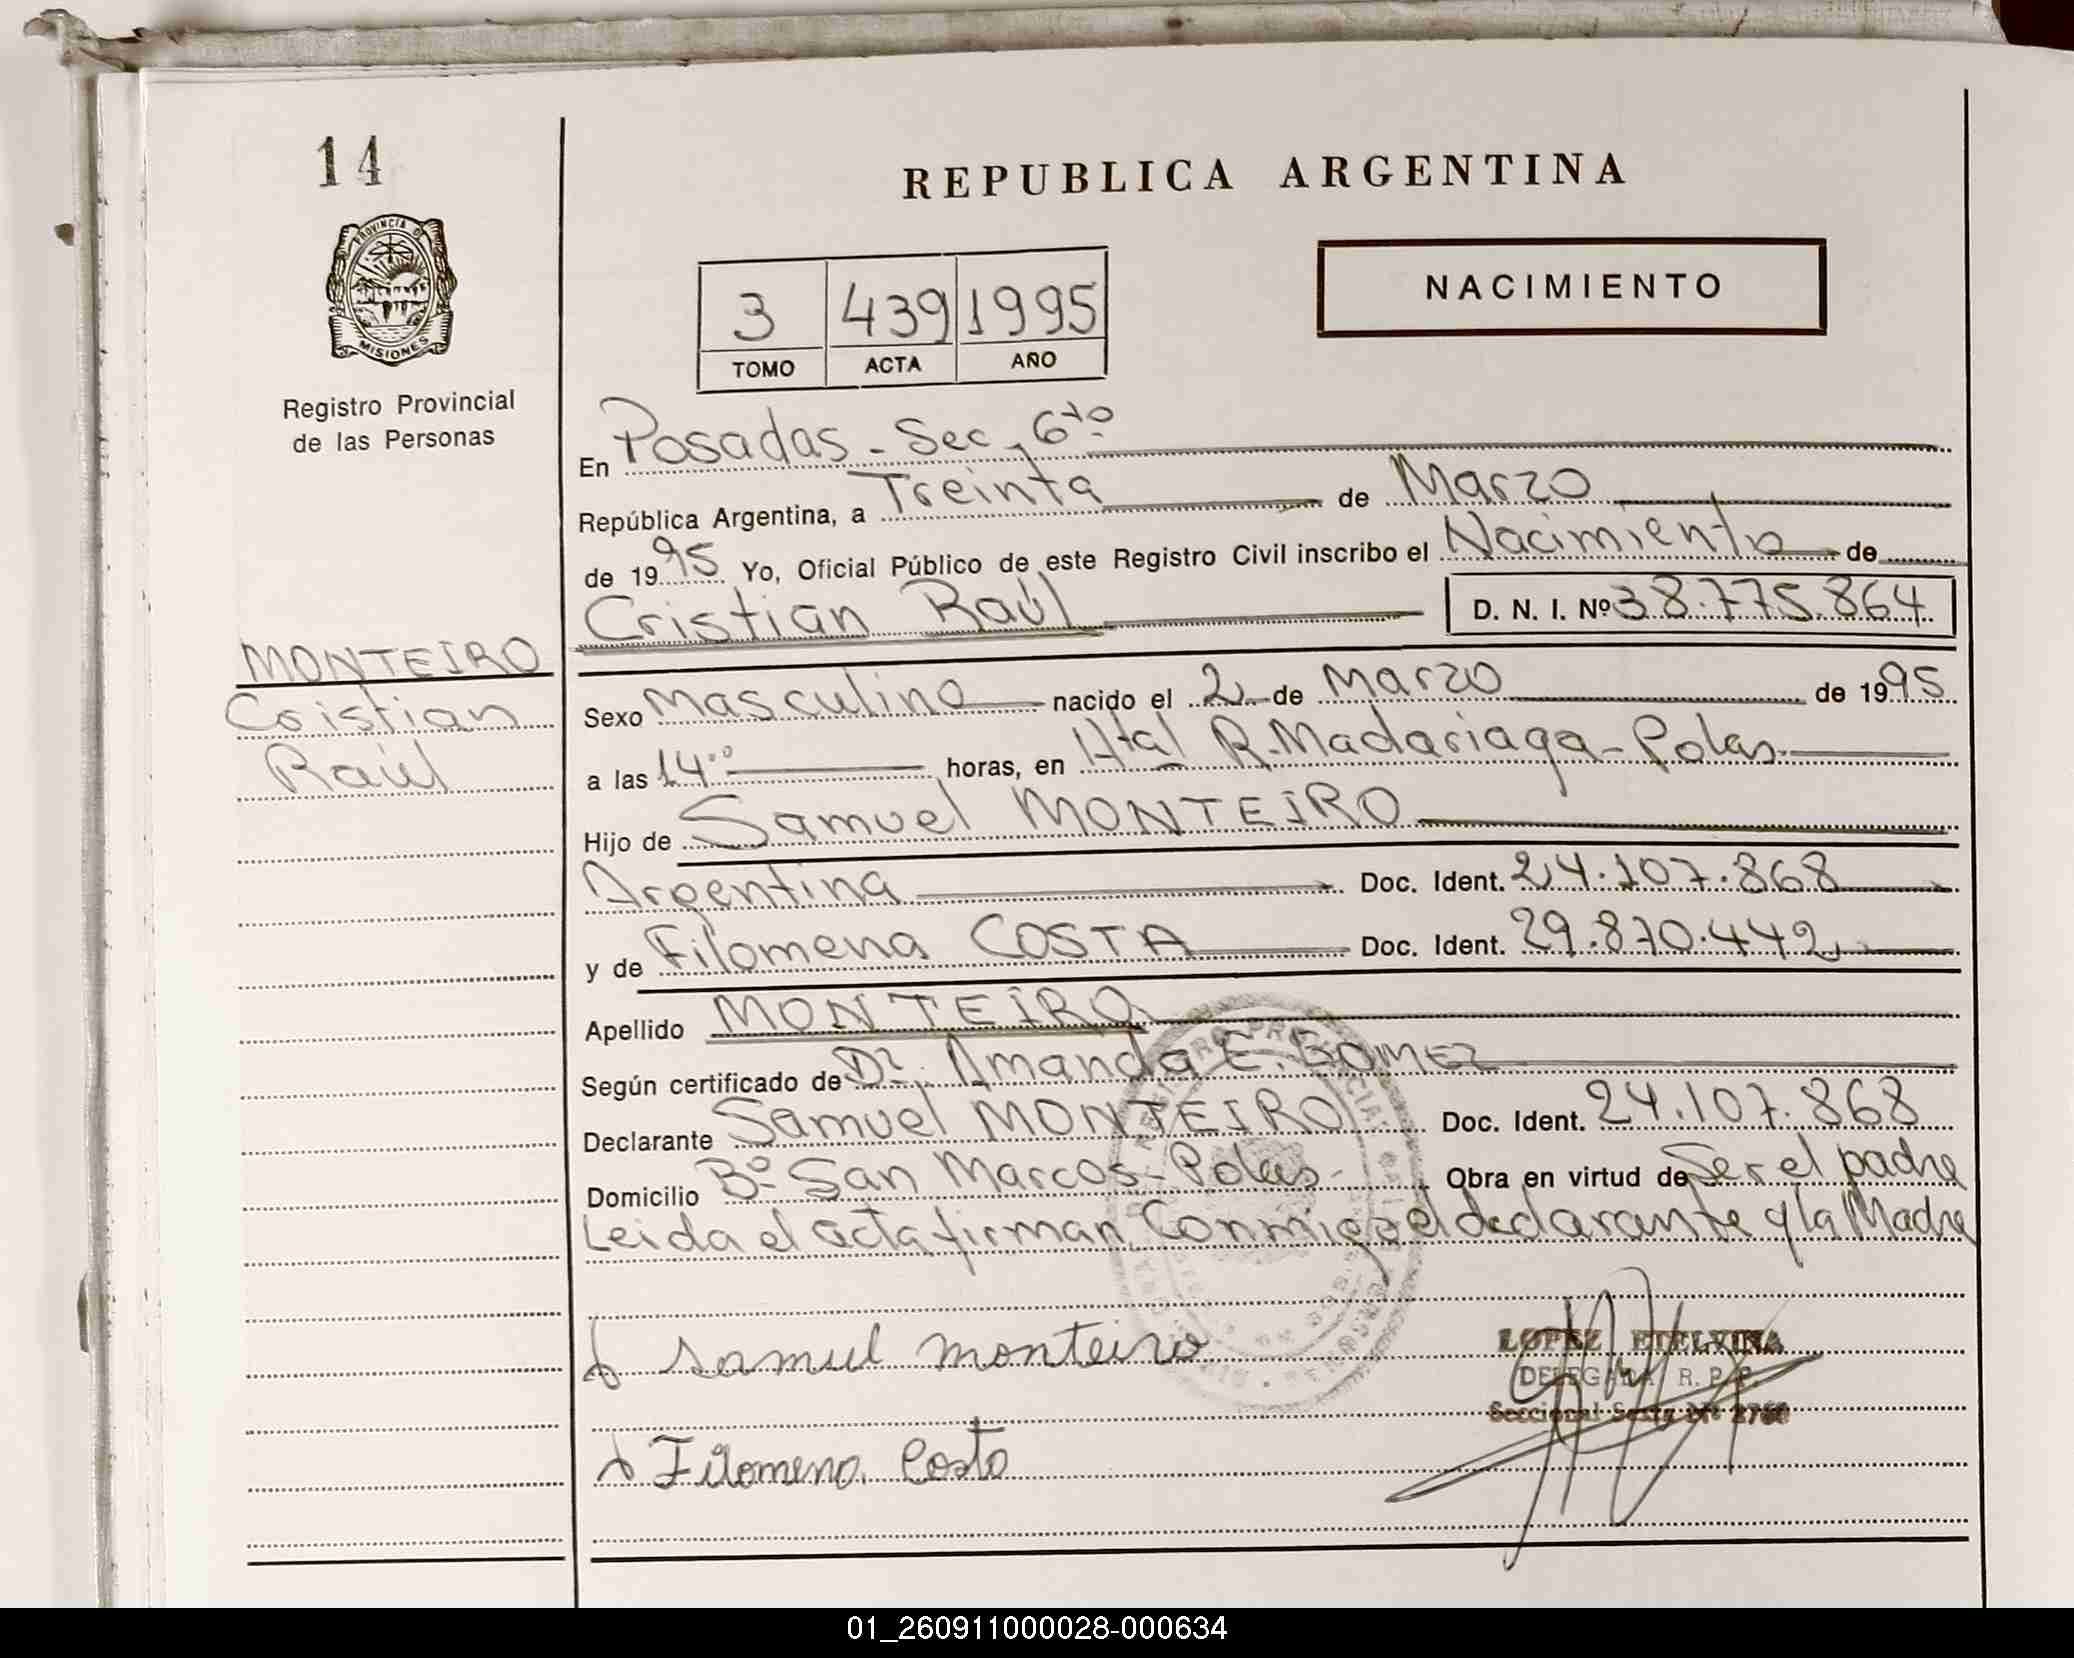 14
PROVINCIA D
MISIONES
Registro Provincial
de las Personas
MONTEIRO
Cristian
Raúl
REPUBLICA ARGENTINA
NACIMIENTO
3 439 1995
TOMO ACTA AÑO
En Posadas - Sec. 6to
República Argentina, a Treinta de Marzo
de 1995 Yo, Oficial Público de este Registro Civil inscribo el Nacimiento de
Cristian Raúl D. N. I. Nº 38.775.864
Sexo Masculino nacido el 2 de Marzo de 1995
a las 14 horas, en Htal R. Madariaga - Pdas.
Hijo de Samuel MONTEIRO
Argentina Doc. Ident. 24.107.868
y de Filomena COSTA Doc. Ident. 29.870.442
Apellido MONTEIRO
Según certificado de Dr. Amanda E. GOMEZ
Declarante Samuel MONTEIRO Doc. Ident. 24.107.868
Domicilio Bº San Marcos - Pdas - Obra en virtud de Ser el padre
Leida el acta firman Conmigo el declarante y la Madre
Samuel Monteiro
Filomena Costa
LOPEZ ETELVINA
DELEGADA R. P. P.
Seccional Sexta Nº
01_260911000028-000634